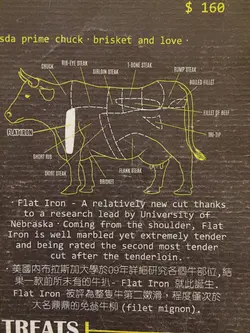 $ 160
sda prime chuck · brisket and love ·
RIB-EYE STEAK
T-BONE STEAK
CHUCK
SIRLOIN STEAK
RUMP STEAK
FLAT IRON
TRI-TIP
SHORT RIB
SKIRT STEAK
FLANK STEAK
BRISKET
· Flat Iron - A relatively new cut thanks
to a research lead by University of
Nebraska · Coming from the shoulder, Flat
Iron is well marbled yet extremely tender
and being rated the second most tender
cut after the tenderloin.
· 美國內布拉斯加大學於09年詳細研究各個牛部位,結
果一款前所未有的牛扒- Flat Iron 就此誕生.
Flat Iron 被評為整隻牛第二嫩滑，程度僅次於
大名鼎鼎的免翁牛柳 (filet mignon).
TREATS